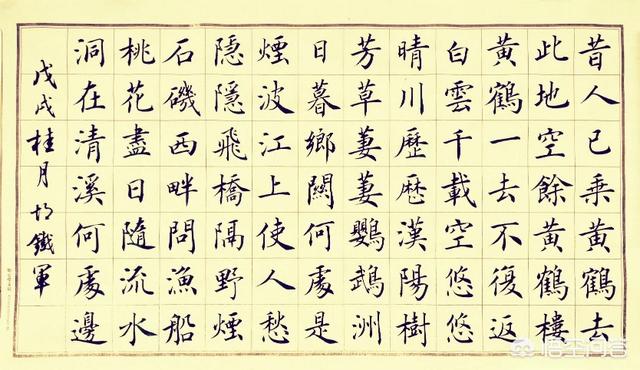 昔人已乘黃鶴去
此地空餘黃鶴樓
黃鶴一去不復返
白雲千載空悠悠
晴川歷歷漢陽樹
芳草萋萋鸚鵡洲
日暮鄉關何處是
煙波江上使人愁
隱隱飛橋隔野煙
石磯西畔問漁船
桃花盡日隨流水
洞在清溪何處邊
戊戌桂月胡鐵軍
悟空问答